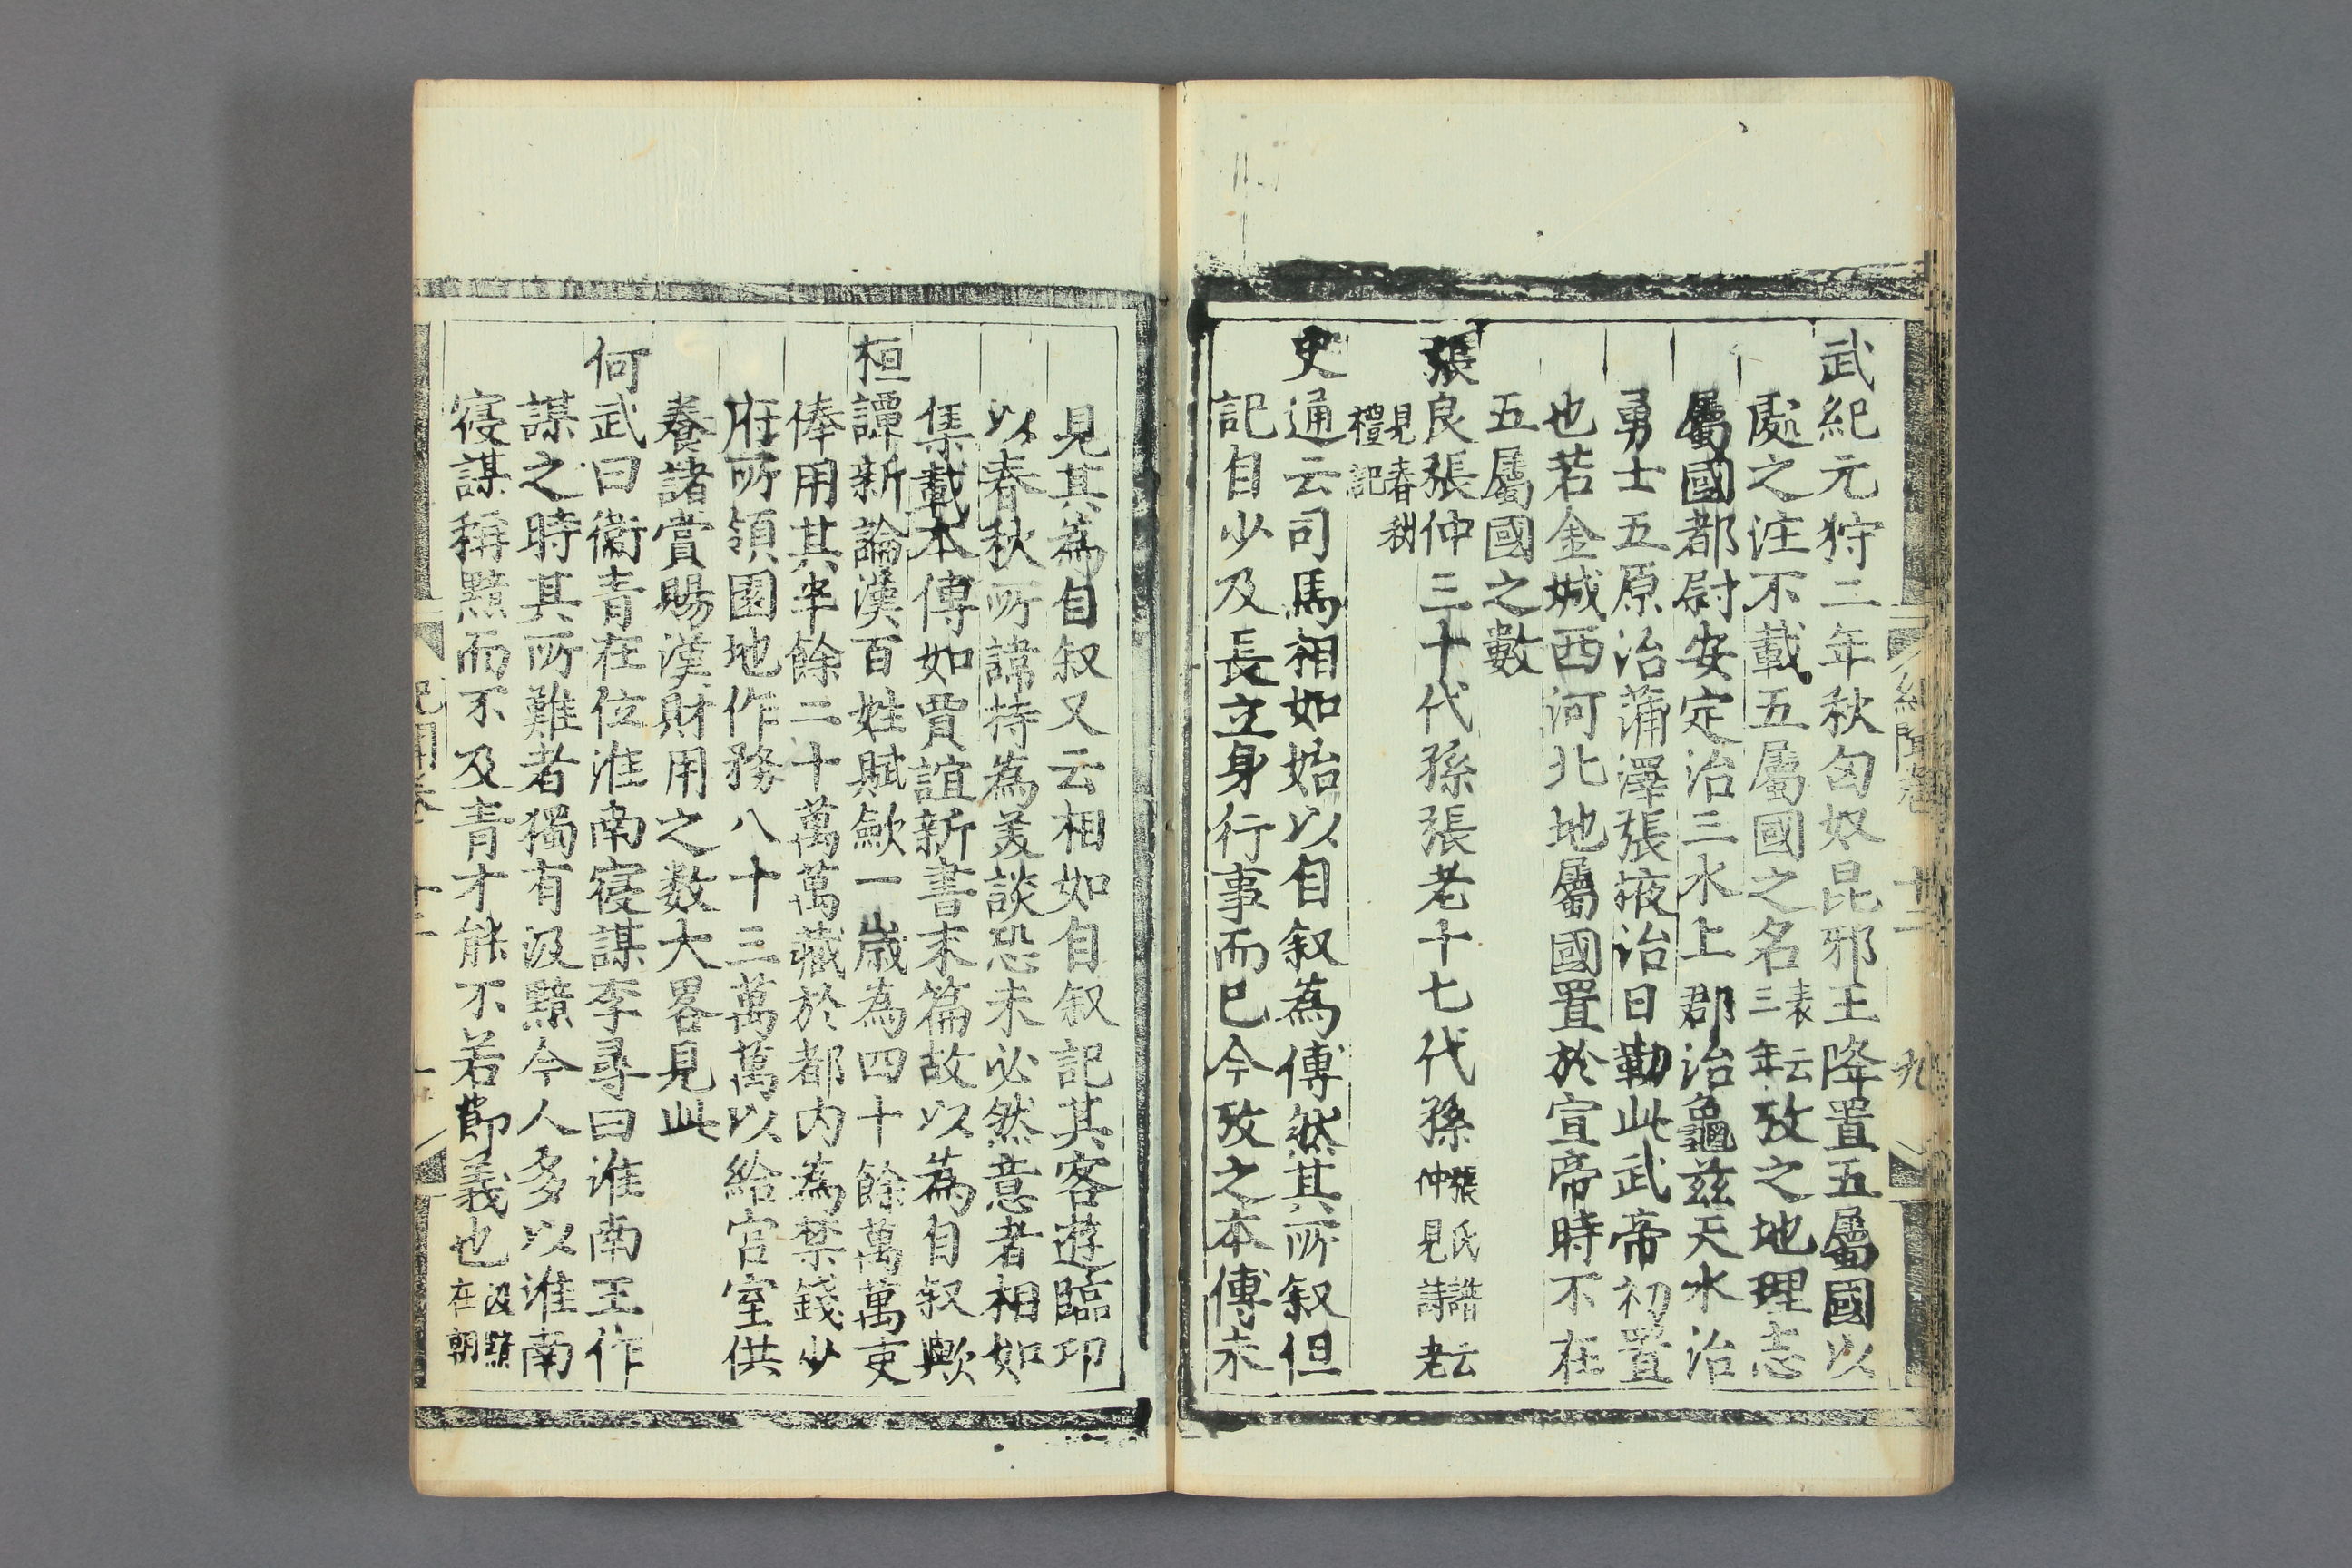 武紀元狩二年秋匈奴昆邪王降置五屬國以
處之注不載五屬國之名表云三年攷之地理志
屬國都尉安定治三水上郡治龜茲天水治
勇士五原治蒲澤張掖治日勒此武帝初置
也若金城西河北地屬國置於宣帝時不在
五屬國之數
張良張仲三十代孫張老十七代孫張氏譜云仲見詩老
見春秋禮記
史通云司馬相如始以自叙為傳然其所叙但
記自少及長立身行事而已今攷之本傳未
見其為自叙又云相如自叙記其客遊臨卭
以春秋所諱持為美談恐未必然意者相如
集載本傳如賈誼新書末篇故以為自叙歟
桓譚新論漢百姓賦斂一歲為四十餘萬萬吏
俸用其半餘二十萬萬藏於都内為禁錢少
府所領園地作務八十三萬萬以給宫室供
養諸賞賜漢財用之数大畧見此
何武曰衞青在位淮南寑謀李尋曰淮南王作
謀之時其所難者獨有汲黯今人多以淮南
寑謀稱黯而不及青才能不若節義也汲黯在朝